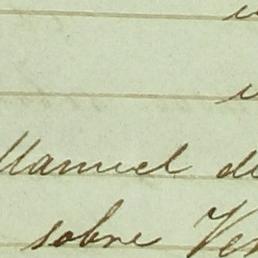 Manuel de
sobre Ven